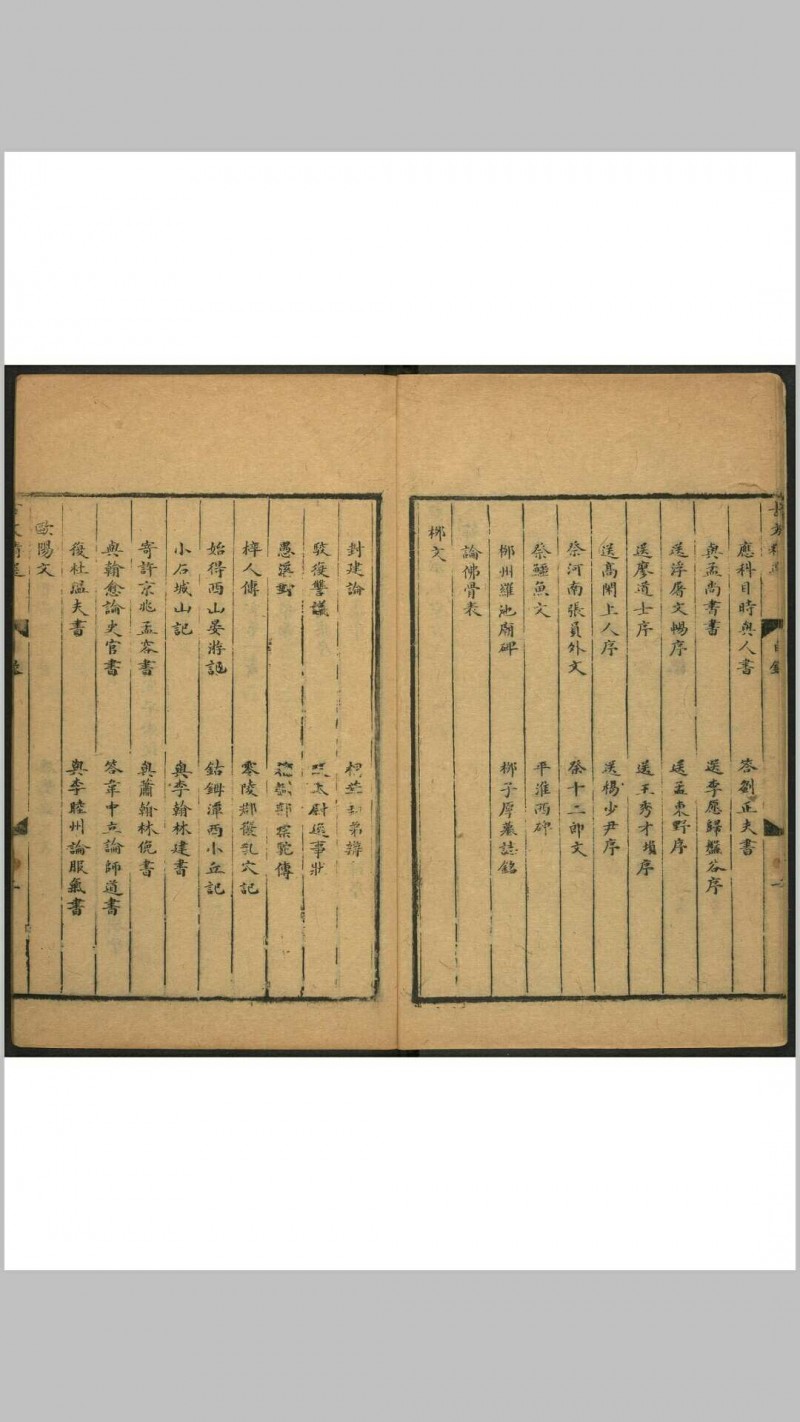 應科目時與人書 答劉正夫書
與孟尚書書 送李愿歸盤谷序
送浮屠文暢序 送孟東野序
送廖道士序 送王秀才塤序
送高閑上人序 送楊少尹序
祭河南張員外文 祭十二郎文
祭鱷魚文 平淮西碑
柳州羅池廟碑 柳子厚墓誌銘
論佛骨表
柳文
封建論 桐葉封弟辯
駁復讐議 太尉逸事狀
愚溪對
梓人傳 零陵郡復乳穴記
始得西山宴游記 鈷鉧潭西小丘記
小石城山記 與李翰林建書
寄許京兆孟容書 與蕭翰林俛書
與韓愈論史官書 答韋中立論師道書
復杜溫夫書 與李睦州論服氣書
歐陽文